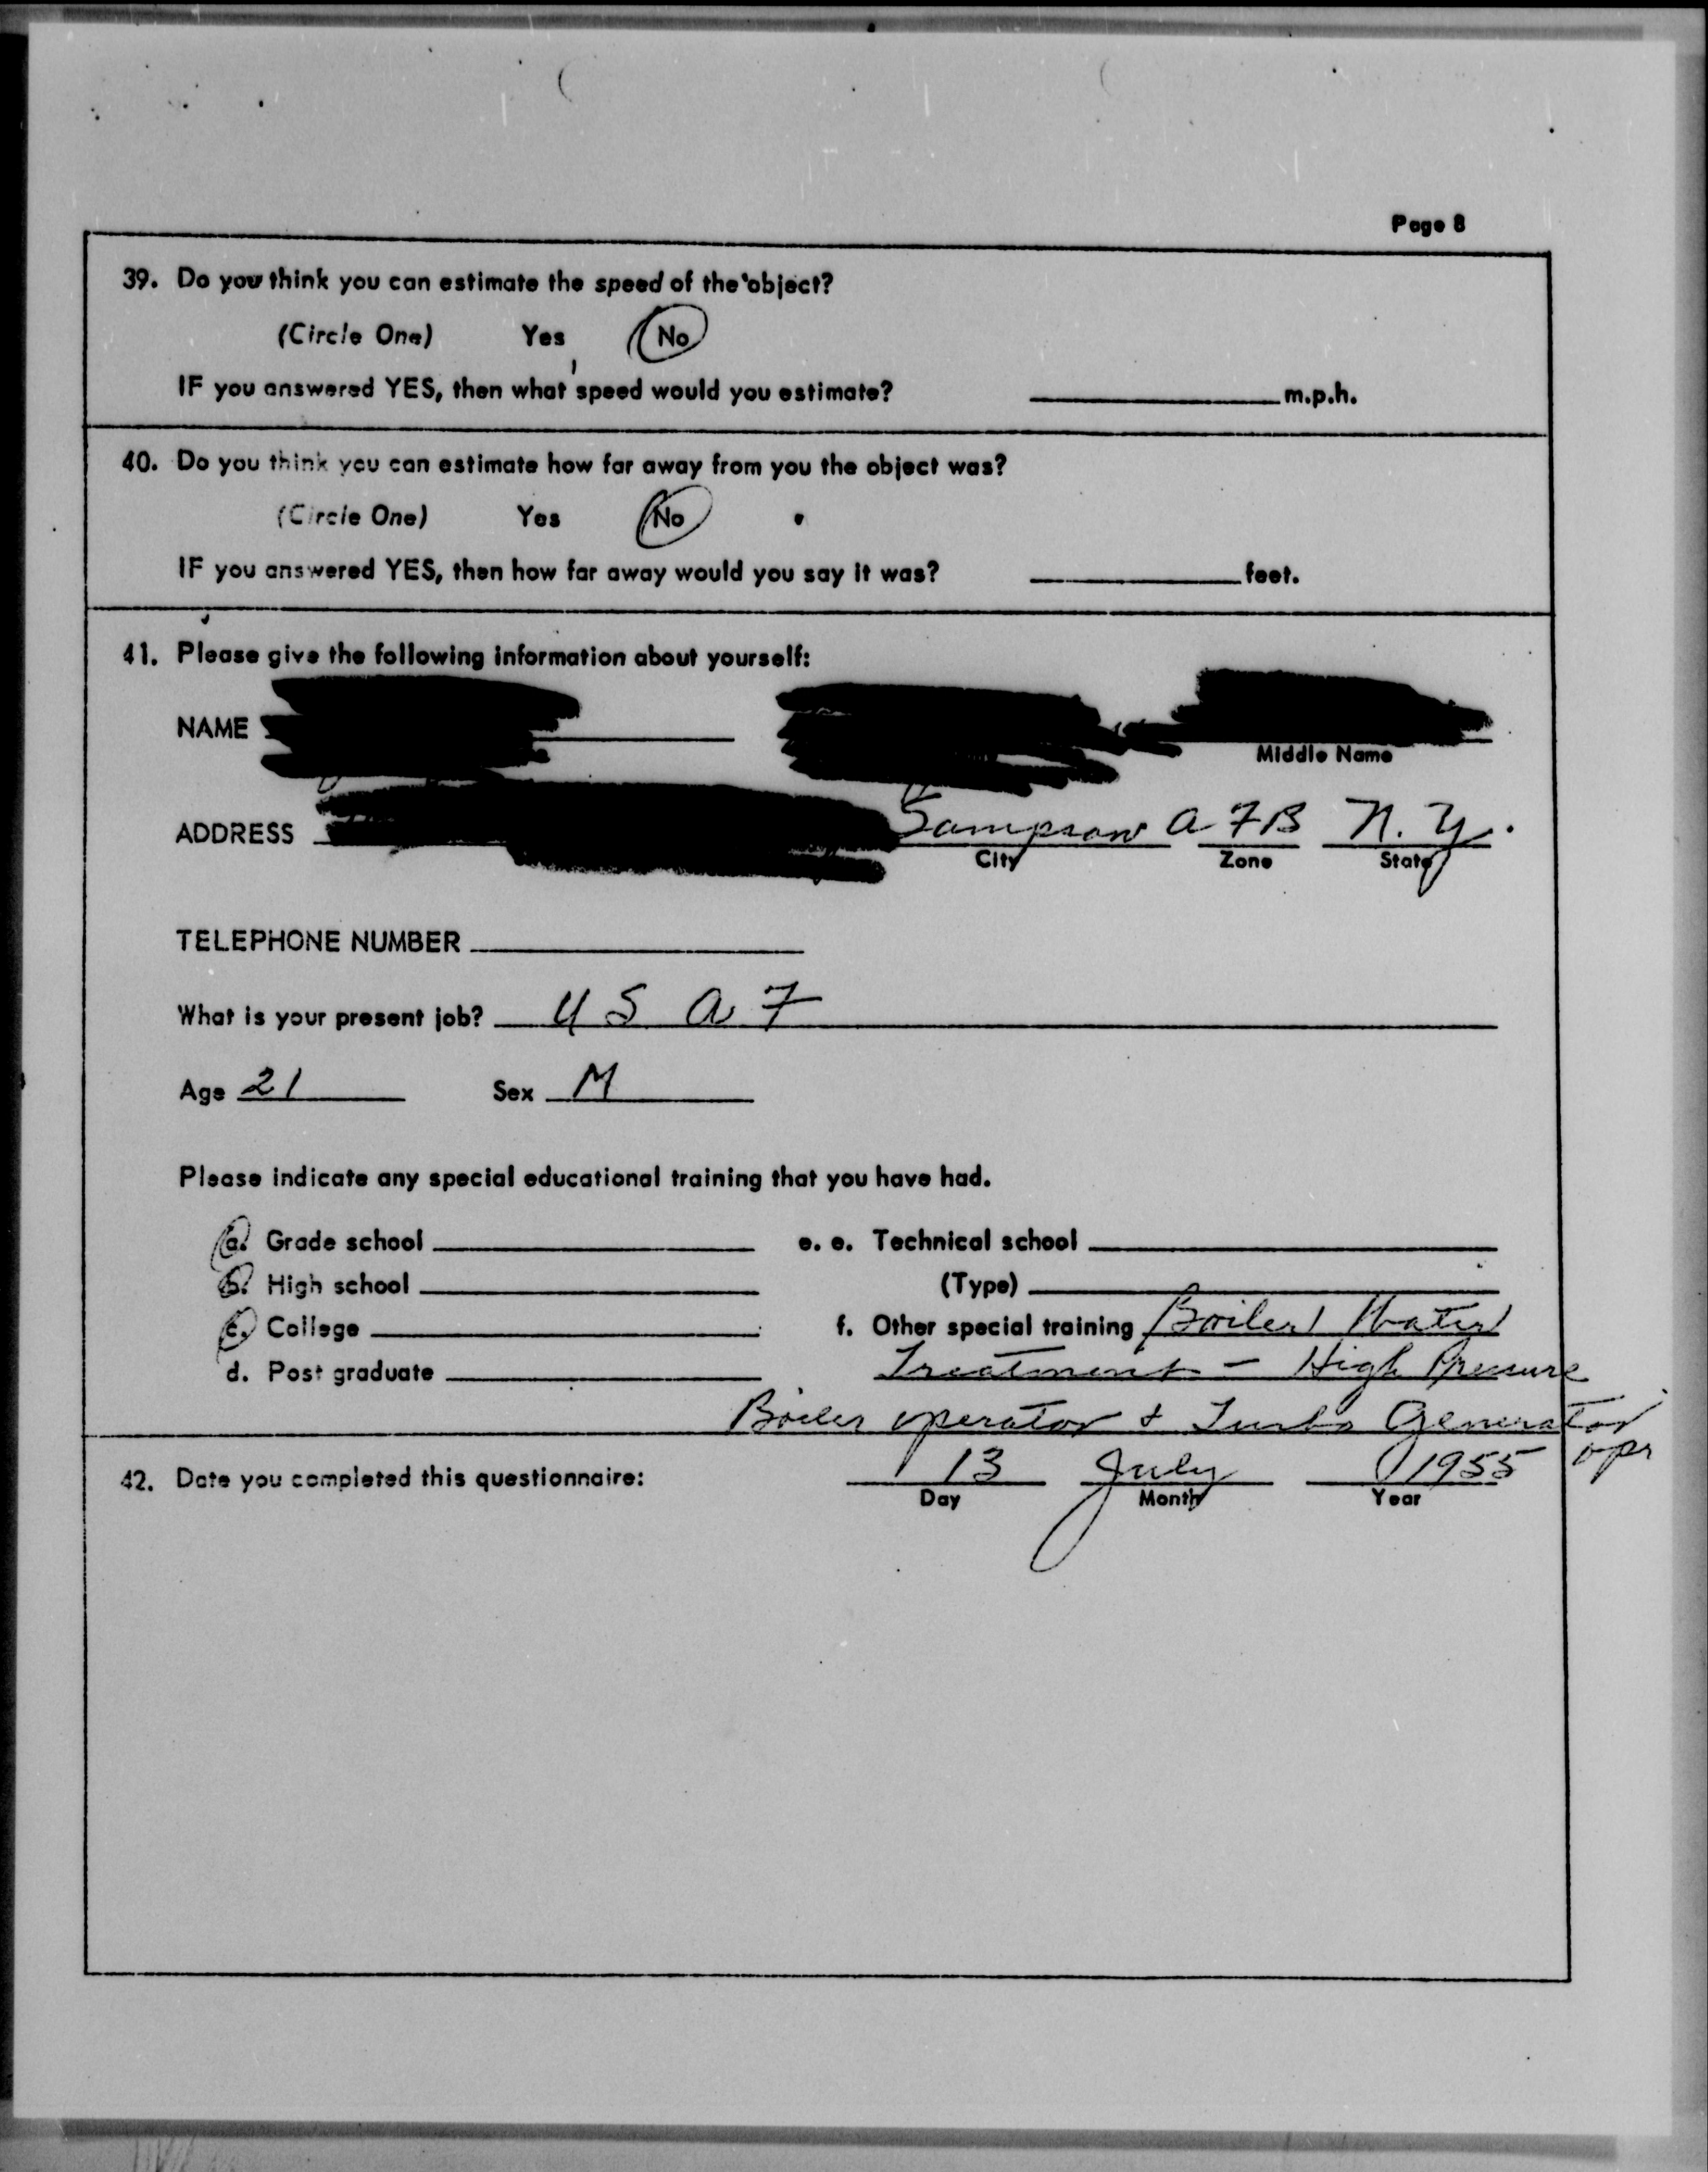 Page 8
39. Do you think you can estimate the speed of the object?
(Circle One) Yes No
IF you answered YES, then what speed would you estimate? m.p.h.
40. Do you think you can estimate how far away from you the object was?
(Circle One) Yes No
IF you answered YES, then how far away would you say it was? feet.
41. Please give the following information about yourself:
NAME
Middle Name
ADDRESS Sampson AFB N.Y.
City Zone State
TELEPHONE NUMBER
What is your present job? USAF
Age 21 Sex M
Please indicate any special educational training that you have had.
a. Grade school e. e. Technical school
b. High school (Type)
c. College f. Other special training Boiler Water
d. Post graduate Treatment - High Pressure
Boiler operator & Turbo Generator
opr
42. Date you completed this questionnaire: 13 July 1955
Day Month Year